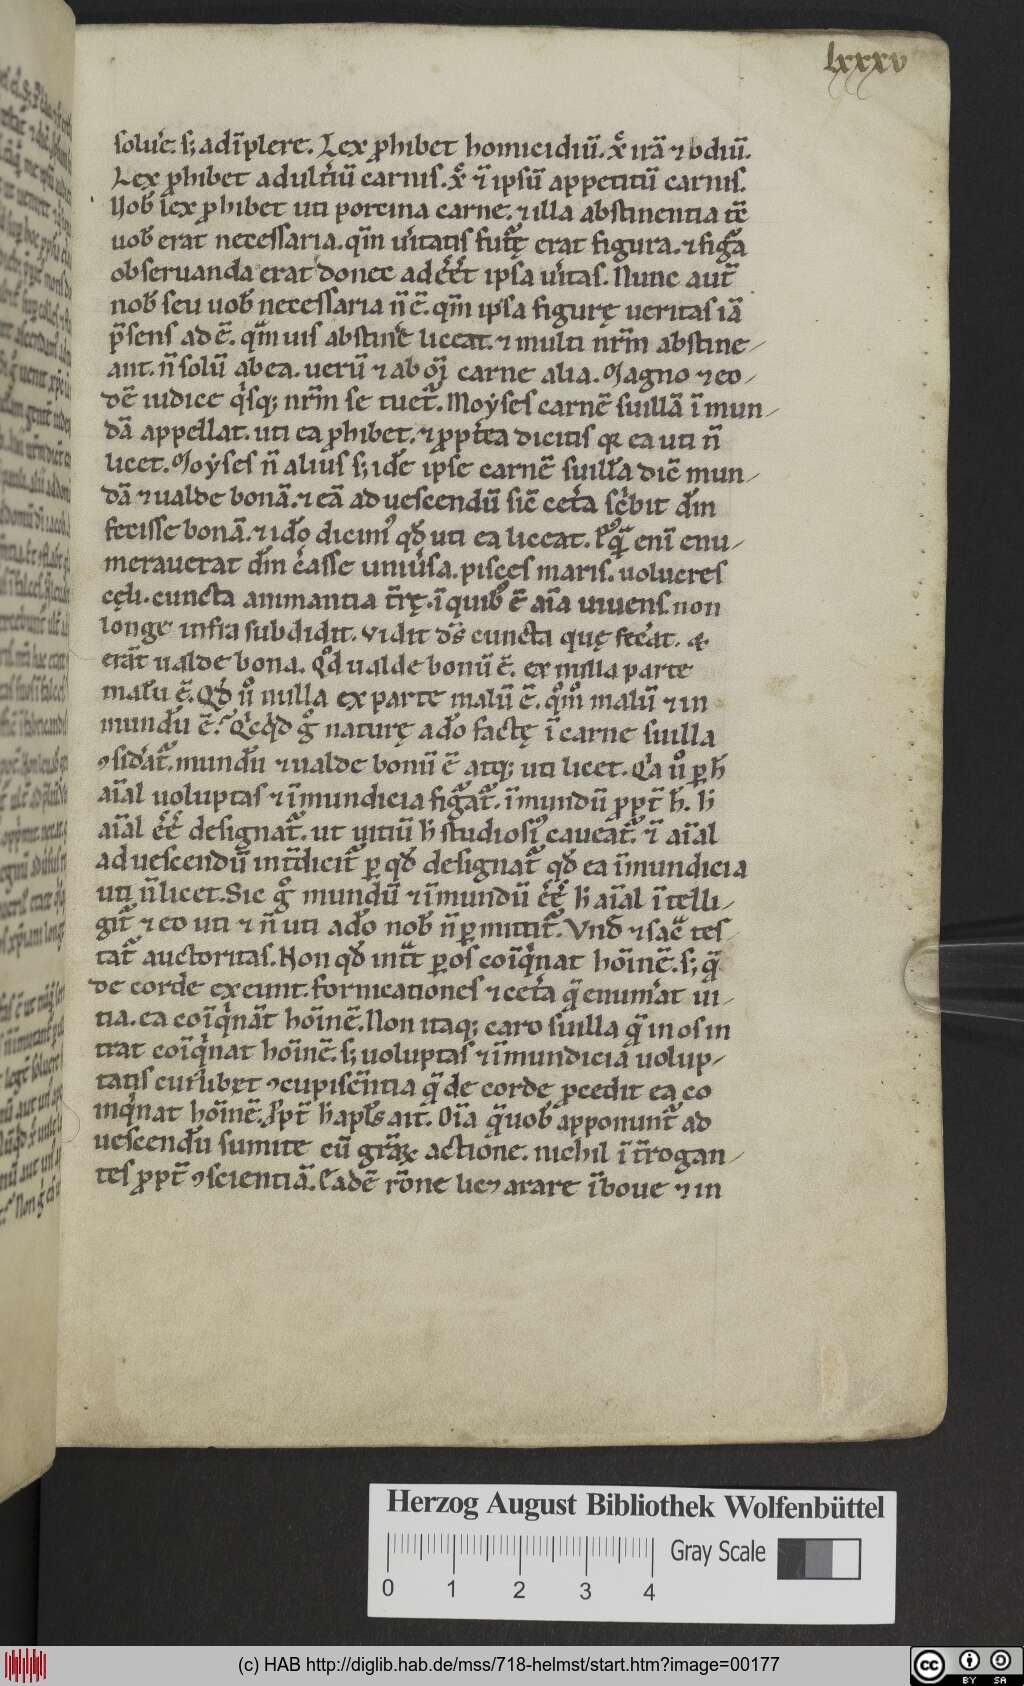 lxxxv
soluĕ. s; adīplere. Lex ꝓhibet homicidiū. xͦ irā ⁊ odiū.
Lex ꝓhibet adult̾iū carnis. xͦ ⁊̄ ipsū appetitū carnis.
Uob̄ lex ꝓhibet uti porcina carne. ⁊ illa abstinentia tē
uob̄ erat necessaria. qm̄ u̾itatis futę̄ erat figura. ⁊ figᷓa
obseruanda erat donec ad eēt ipsa u̾itas. Nunc aut̄
nob̄ seu uob̄ necessaria n̄ ē. qm̄ ipsa figurę ueritas iā
p̄sens adē. qᷓm uis abstinĕ liceat. ⁊ multi nr̄m abstine
ant. n̄ solū ab ea. uerū ⁊ ab oī carne alia. Magno ⁊ eo
dē iudice qͥsq; nr̄m se tuet᷑. Moẏses carnē suillā ī mun
dā appellat. uti ea ꝓhibet. ⁊ ꝓpt̾ea dicitis qꝛ ea uti n̄
licet. Moẏses n̄ alius s; idē ipse carnē suillā dic̄ mun
dā ⁊ ualde bonā. ⁊ eā ad uescendū sic̄ cet̾a sc̾bit dm̄
fecisse bonā. ⁊ ido dicim᷒ qd̄ uti ea liceat. Postqᷓ enī enu
merauerat dm̄ c̾asse uniu̾sa. pisces maris. uolucres
cęli. cuncta animantia t̄rę. ī quib᷒ ē aīa uiuens. non
longe infra subdidit. Vidit ds̄ cuncta quę fec̾at. ⁊
erāt ualde bona. Qͦd ualde bonū ē. ex nulla parte
malū ē. Qd̄ uͦ nulla ex parte malū ē. qͦmͦ malū ⁊ in
mundū ē? Qͥcqͥd gͦ naturę a do factę ī carne suilla
ꝯsid̾at᷑. mundū ⁊ ualde bonū ē atq; uti licet. Qͥa uͦ ꝑ h̄
aīal uoluptas ⁊ īmundicia figᷓat᷑. īmundū ꝓpt̄ h̄. h̄
aīal eē designat᷑. ut uitiū h̄ studiosi᷒ caueat᷑. ⁊̄ aīal
ad uescendū int̾dicit᷑ ꝑ qd̄ designat᷑ qd̄ ea īmundicia
uti n̄ licet. Sic gͦ mundū ⁊ īmundū eē h̄ aīal ītelli
git᷑ ⁊ eo uti ⁊ n̄ uti a do nob̄ n̄ ꝑmittit᷑. Vnd̄ ⁊ sac̄ tes
tat᷑ auctoritas. Non qd̄ int̄t ꝑ os coīqͥnat hoīnē. s; qᷓ
de corde exeunt. fornicationes ⁊ cet̾a qᷓ enum̾at ui
tia. ea coīqͥnāt hoīnē. Non itaq; caro suilla qᷓ in os in
trat coīqͥnat hoīnē. s; uoluptas ⁊ īmundicia uolup
tatis cui᷒libet ꝯcupiscēntia qᷓ de corde ꝓcedit ea co
inqͥnat hoīnē. Ꝓpt̄ h̄ apls̄ ait. Oīa qᷓ uob̄ apponunt᷑ ad
uescendū sumite cū grāꝝ actione. nichil īt̾rogan
tes ꝓpt̄ ꝯscientiā. Eadē rōne licꝫ arare ī boue ⁊ in
Herzog August Bibliothek Wolfenbüttel
0 1 2 3 4 Gray Scale
(c) HAB http://diglib.hab.de/mss/718-helmst/start.htm?image=00177
cc BY SA